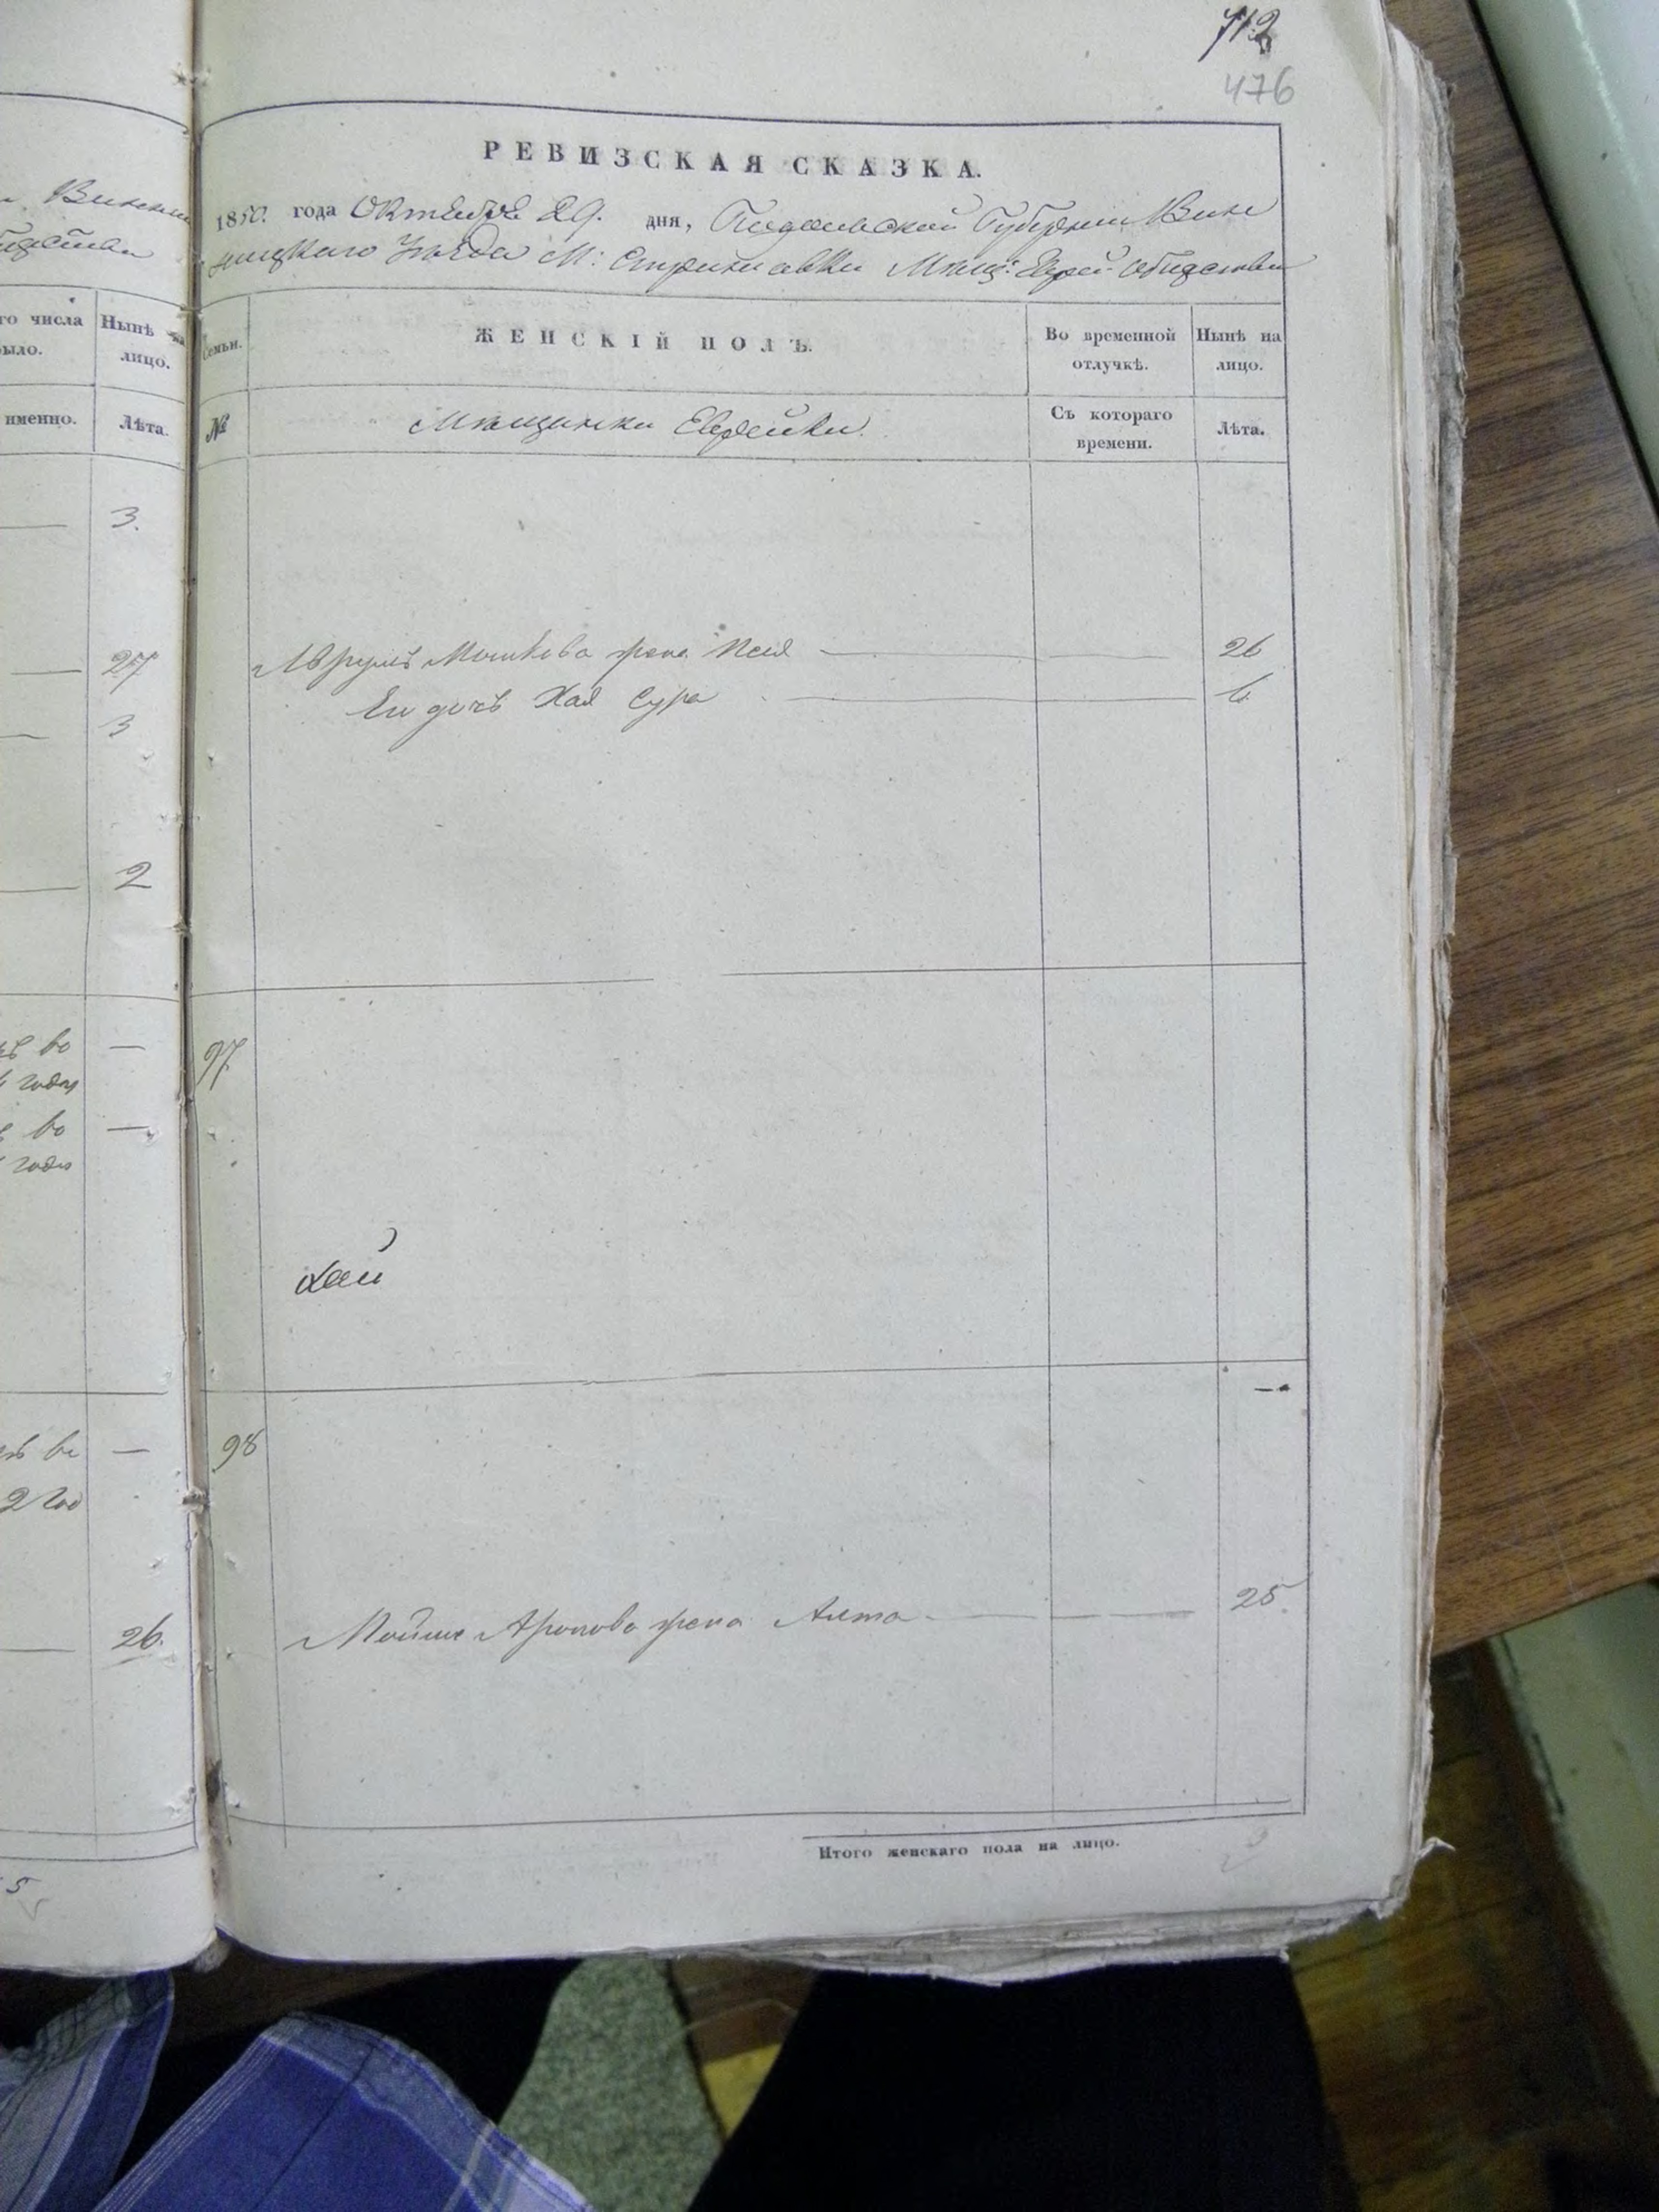 712
476
РЕВИЗСКАЯ СКАЗКА.
1850. года Октября 29. дня, Подольской Губернии Вин
ницкаго Уѣзда М: Стрижавки Мѣщ: Еврей Общества
го числа
ыло.
Нынѣ на
лицо.
Семьи.
ЖЕНСКІЙ ПОЛЪ.
Во временной
отлучкѣ.
Нынѣ на
лицо.
именно.
Лѣта.
№
Мѣщанки Еврейки.
Съ котораго
времени.
Лѣта.
3.
27
Аврумъ Мошкова жена Песя 26
Ею дочь Хая Сура 6.
3
2
въ во — 97.
годах
во —
года
въ во — 98
2 год
26.
Мойше Аронова жена Алта 25.
Итого женскаго пола на лицо. 3
5